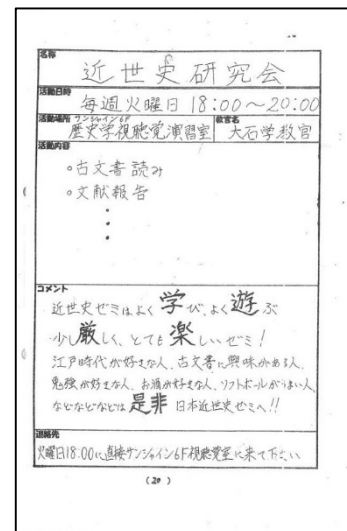 名称
近世史研究会
活動日時
毎週火曜日 18:00～20:00
活動場所 サンシャイン6F
歴史学視聴覚演習室
教官名
大石学教官
活動内容
○古文書読み
○文献報告
・
・
・
コメント
近世史ゼミはよく学び、よく遊ぶ
少し厳しく、とても楽しいゼミ!
江戸時代が好きな人、古文書に興味がある人、
勉強が好きな人、お酒が好きな人、ソフトボールがうまい人、
などなどなどは是非日本近世史ゼミへ!!
連絡先
火曜日18:00に直接サンシャイン6F視聴覚室に来て下さい
(20)